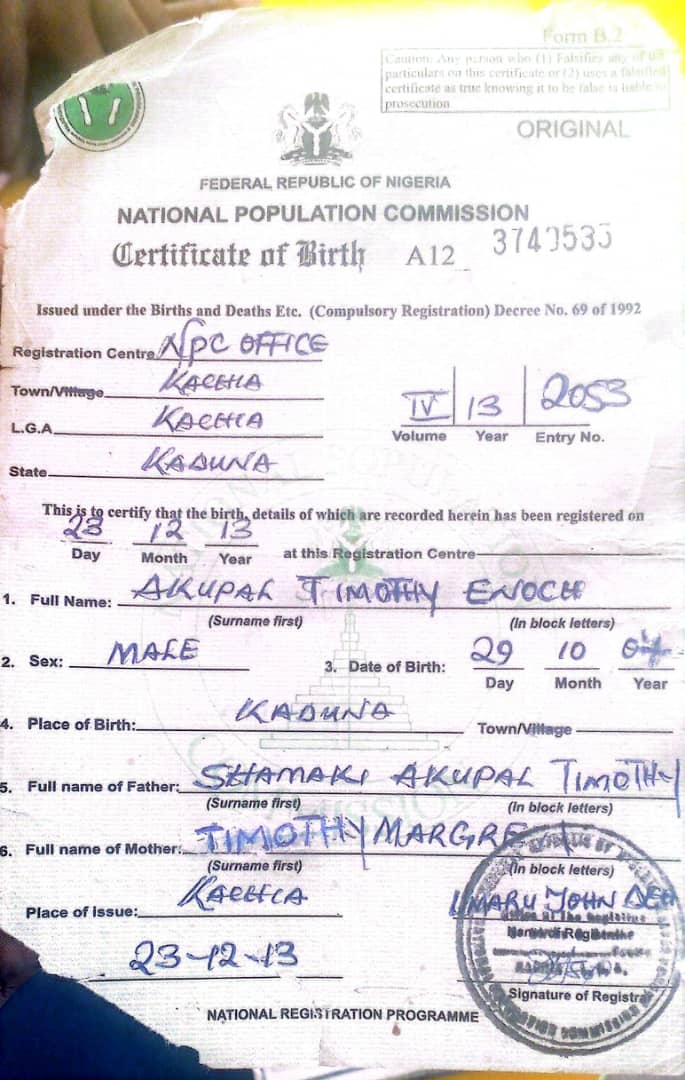 Form B.2
Caution: Any person who (1) Falsifies any of the
particulars on this certificate or (2) uses a falsified
certificate as true knowing it to be false is liable to
prosecution
ORIGINAL
FEDERAL REPUBLIC OF NIGERIA
NATIONAL POPULATION COMMISSION
Certificate of Birth A12 3740535
Issued under the Births and Deaths Etc. (Compulsory Registration) Decree No. 69 of 1992
Registration Centre NPC OFFICE
Town/Village KACHIA
L.G.A KACHIA
State KADUNA
IV 13 2053
Volume Year Entry No.
This is to certify that the birth, details of which are recorded herein has been registered on
23 12 13
Day Month Year at this Registration Centre
1. Full Name: AKUPAL TIMOTHY ENOCH
(Surname first) (In block letters)
2. Sex: MALE 3. Date of Birth: 29 10
Day Month Year
4. Place of Birth: KADUNA Town/Village
5. Full name of Father: SHAMAKI AKUPAL TIMOTHY
(Surname first) (In block letters)
6. Full name of Mother: TIMOTHY MARGRET
(Surname first) (In block letters)
Place of Issue: KACHIA UMARU JOHN
23-12-13
Signature of Registrar
NATIONAL REGISTRATION PROGRAMME